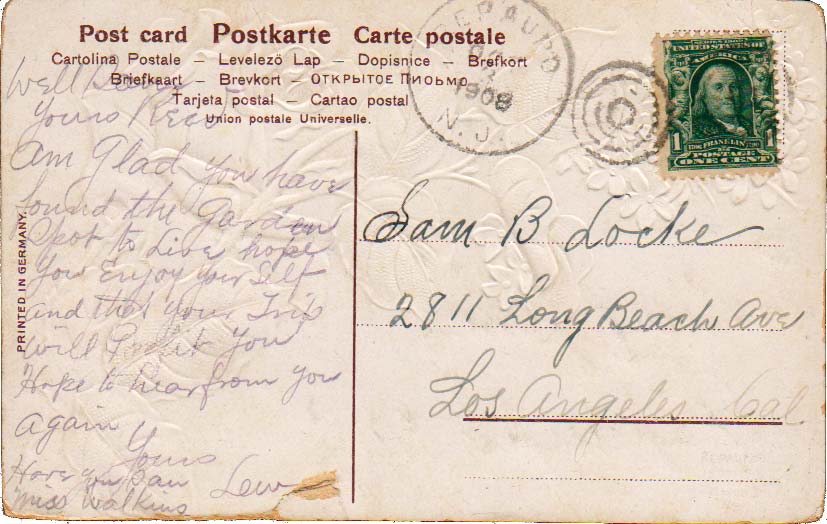 Post card Postkarte Carte postale
Cartolina Postale – Levelező Lap – Dopisnice – Brefkort
Briefkaart – Brevkort – ОТКРЫТОЕ ПИСЬМО
Tarjeta postal – Cartao postal
Union postale Universelle.
PRINTED IN GERMANY
REPAUPO
1908
N.J.
UNITED STATES OF AMERICA
1 FRANKLIN 1
POSTAGE
ONE CENT
Well
Yours
am Glad you have
found the Garden
Spot to Live hope
You Enjoy your Self
and that your Trip
will Profit You
Hope to hear from you
again
Yours
Lew
Have you saw
Miss Watkins
Sam B Locke
2811 Long Beach Ave
Los Angeles Cal